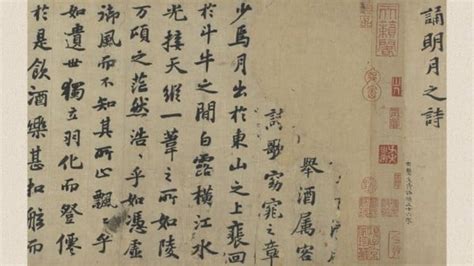 誦明月之詩
舉酒属客
詩歌窈窕之章
少焉月出於東山之上裴回
於斗牛之間白露橫江水
光接天縱一葦之所如陵
万頃之茫然浩〻乎如憑虛
御風而不知其所止飄〻乎
如遺世獨立羽化而登僊
於是飲酒樂甚扣舷而